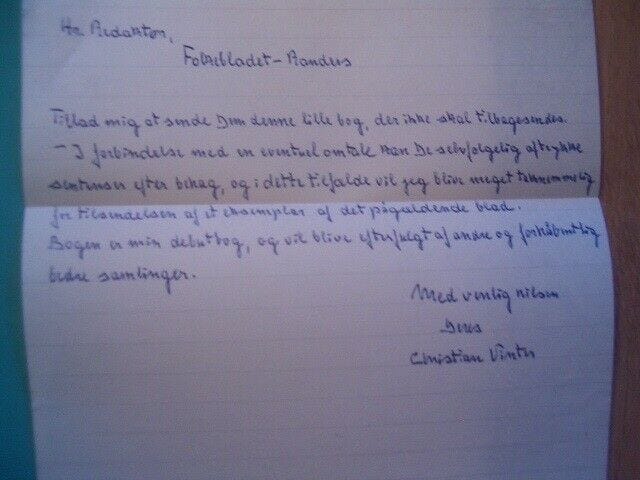 Hr. Redaktør,
Folkebladet - Randers
Tillad mig at sende Dem denne lille bog, der ikke skal tilbagesendes.
- I forbindelse med en eventuel omtale kan De selvfølgelig aftrykke
sentenser efter behag, og i dette tilfælde vil jeg blive meget taknemmelig
for tilsendelsen af et eksemplar af det pågældende blad.
Bogen er min debutbog, og vil blive efterfulgt af andre og forhåbentlig
bedre samlinger.
Med venlig hilsen
Deres
Christian Vinter